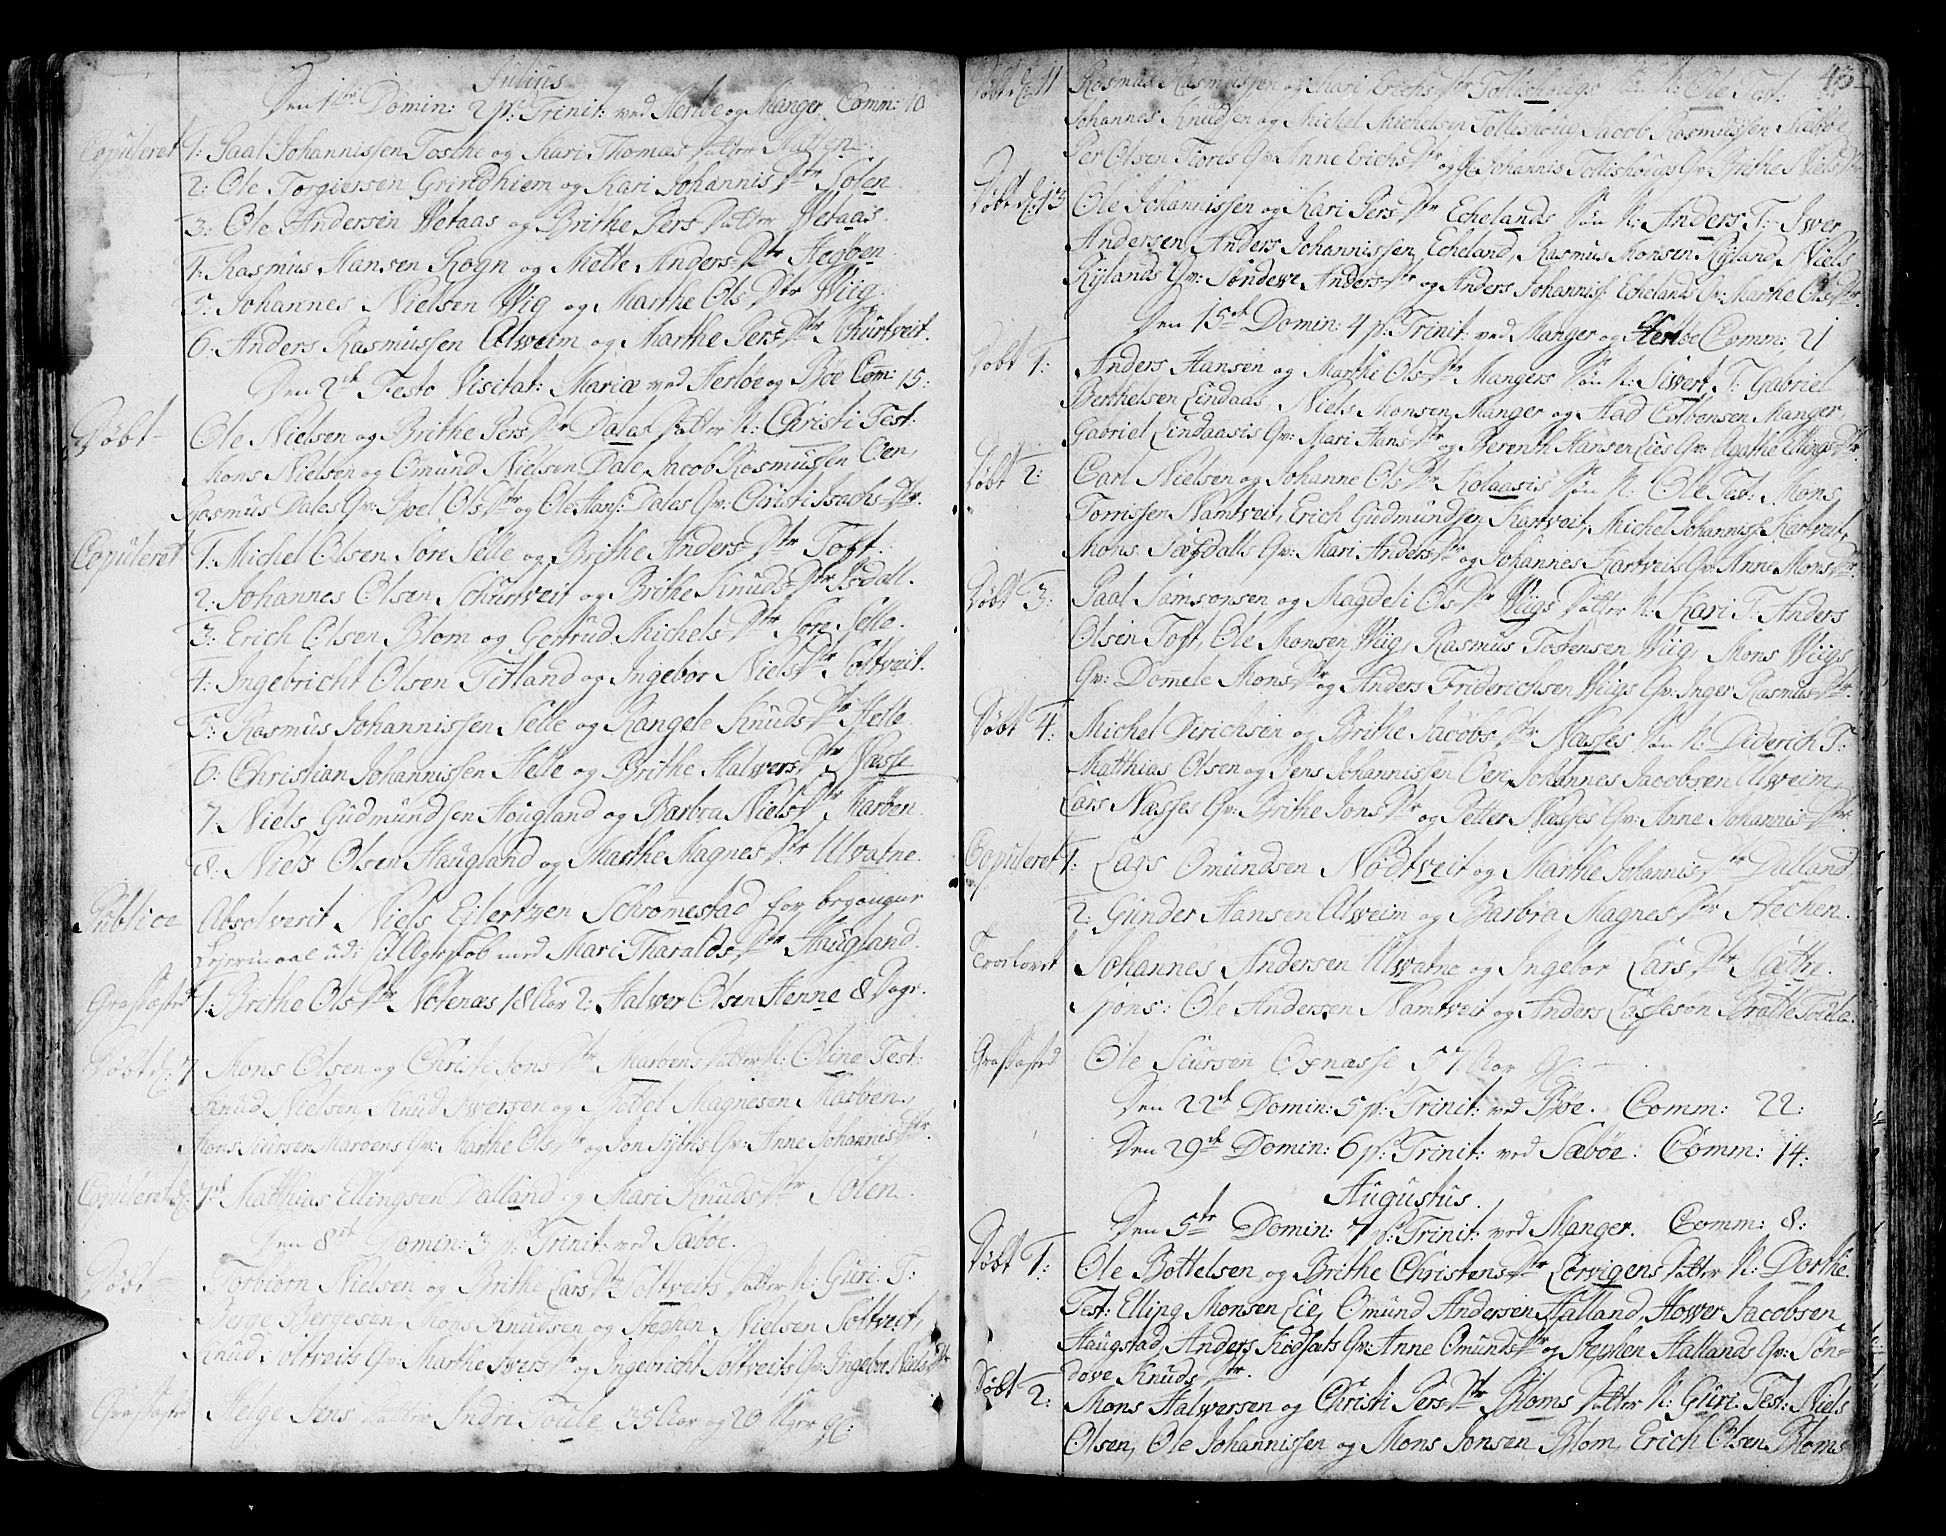 Julius
Den 1te Domin: 2 p: Trinit: ved Herløe og Manger. Comm: 10
Copuleret 1: Paal Johannissen Tosche og Kari Thomæs Datter
2: Ole Torgiersen Grindhiem og Kari Johannis Dtr Solen.
3: Ole Andersen Wetaas og Brithe Pers Datter Wetaas.
4: Rasmus Hansen Rogn og Mette Anders Dtr Hegøen
5: Johannes Nielsen Wiig og Marthe Ols Dtr Wiig.
6: Anders Rasmussen Alweim og Marthe Pers Dtr Schurtveit.
Den 2de Festo Visitat: Mariæ ved Herløe og Bøe Com: 15:
Døbt Ole Nielsen og Brithe Pers Dtr Dales Datter N: Christi Test:
Mons Nielsen og Omund Nielsen Dale, Jacob Rasmussen Oen,
Rasmus Dales Qv: Boel Ols Dtr og Ole Hans: Dales Qv: Christi Isachs Dtr.
Copuleret 1: Michel Olsen Søre Selle og Brithe Anders Dtr Toft.
2: Johannes Olsen Schurtveit og Brithe Knuds Dtr Isdall.
3: Erich Olsen Blom og Gertrud Michels Dtr Søre Selle.
4: Ingebricht Olsen Titland og Ingebor Niels Dtr Soltveit.
5: Rasmus Johannissen Selle og Rangele Knuds Dtr Helle.
6: Christian Johannissen Helle og Brithe Halvers Dtr Næsse
7 Niels Gudmundsen Hougland og Barbra Niels Dtr Marøen.
8: Niels Olsen Haugland og Marthe Magnes Dtr Ulvatne.
Publice Absolverit Niels Eilertzen Schromestad for begangen
Leiermaal ud: Ægteskab med Mari Tharalds Dtr Haugland.
Græsfæstet 1: Brithe Ols Dtr Notenæs 18 Aar 2: Halver Olsen Henne 8 Dage.
Døbt d: 7 Mons Olsen og Christi Jons Dtr Marøens Datter N: Oline Test:
Knud Nielsen, Knud Iversen og Bottel Magnesen Marøen,
Mons Siursen Marøens Qv: Marthe Ols Dtr og Jon Qv: Anne Johannis Dtr.
Copuleret d: 7de Matthias Ellingsen Dalland og Mari Knuds Dtr Solen.
Den 8de Domin: 3 p: Trinit: ved Sæbøe.
Døbt Torbiørn Nielsen og Brithe Lars Dtr Soltveits Datter N: Guri. T:
Berge Bergesen, Mons Knudsen og Stephen Nielsen Soltveit,
Knud Soltveits Qv: Marthe Ivers Dtr og Ingebricht Soltveits Qv: Ingebor Niels Dtr
Græsfæstet Helge Jons Datter Indre 35 Aar og 20 Uger gl:
43
Døbt d: 11 Rasmus Rasmussen og Kari Erichs Dtr Tollishougs Søn N: Ole Test:
Johannes Knudsen og Michel Michelsen Tolleshoug, Jacob Rasmussen Sæbøe,
Per Olsen Qv: Anne Erichs Dtr og Johannis Tolleshougs Qv: Brithe Niels Dtr
Døbt d: 13 Ole Johannissen og Kari Pers Dtr Echelands Søn N: Anders T: Iver
Andersen, Anders Johannissen, Echeland, Rasmus Monsen Ryland, Niels
Rylands Qv: Søndeve Anders Dtr og Anders Johannis: Echelands Qv: Marthe Ols Dtr.
Den 15de Domin: 4 p: Trinit: ved Manger og Herløe Comm: 21
Døbt 1: Anders Hansen og Marthe Ols Dtr Mangers Søn N: Sivert. T: Gabriel
Berthelsen Lindaas, Niels Monsen Manger og Aad Colbensen Manger,
Gabriel Lindaasis Qv: Mari Hans Dtr og Berenth Hansen Lies Qv: Agathe Ellings Dtr.
Døbt 2: Carl Nielsen og Johanne Ols Dtr Kolaasis Søn N: Ole Test: Mons
Torrissen Namtveit, Erich Gudmundsen Kartveit, Michel Johanniss: Kartveit,
Mons Qv: Mari Anders Dtr og Johannes Kartveits Qv: Anne Mons Dtr.
Døbt 3: Paal Samsonsen og Magdeli Ols Dtr Wiigs Datter N: Kari T: Anders
Olsen Toft, Ole Monsen Wiig, Rasmus Tostensen Wiig, Mons Wiigs
Qv: Domele Mons Dtr og Anders Friderichsen Wiigs Qv: Inger Rasmus Dtr.
Døbt 4: Michel Dirichsen og Brithe Jacobs Dtr Næsses Søn N: Diderich T:
Matthias Olsen og Jens Johannissen Oen, Johannes Jacobsen Ulveim,
Lars Næsses Qv: Brithe Jons Dtr og Petter Næsses Qv: Anne Johannis Dtr.
Copuleret 1: Lars Omundsen Nødtveit og Marthe Johannis Dtr Dalland,
2: Gunder Hansen Alveim og Barbra Magnes Dtr Hechen.
Trolovet Johannes Andersen Ulvatne og Ingebor Lars Dtr Sæthre.
Spons: Ole Andersen Namtveit og Anders Lasseson
Græsfæsted Ole Siursen Oxnæsse 57 Aar gl:
Den 22de Domin: 5 p: Trinit: ved Bøe. Comm: 22:
Den 29de Domin: 6 p: Trinit: ved Sæbøe: Comm: 14:
Augustus.
Den 5te Domin: 7 p: Trinit: ved Manger. Comm: 8:
Døbt 1: Ole Bottelsen og Brithe Christens Dtr Lørvigens Datter N: Dorthe.
Test: Elling Monsen Lie, Omund Andersen Halland, Hower Jacobsen
Haugstad, Anders Qv: Anne Omunds Dtr og Stephen Hallands Qv: Søn=
døve Knuds Dtr.
Døbt 2: Mons Halversen og Christi Pers Dtr Bloms Datter N: Guri. Test: Niels
Olsen, Ole Johannissen og Mons Jonsen Blom, Erich Olsen Bloms